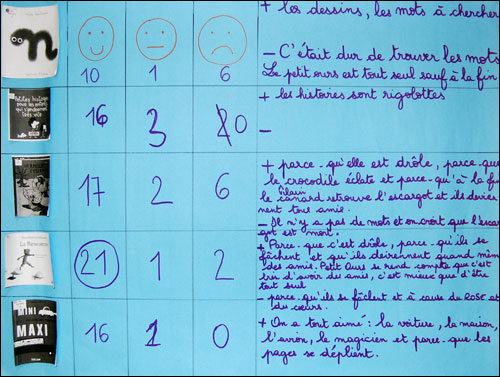 + les dessins, les mots à chercher
- C'était dur de trouver les mots
Le petit ours est tout seul sauf à la fin
10 1 6
+ les histoires sont rigolottes
-
16 3 0
Petites histoires
pour les enfants
qui s'endorment
très vite
+ parce-qu'elle est drôle, parce-que
le crocodile éclate et parce-qu'à la fin
le vilain canard retrouve l'escargot et ils devien
nent tout amie.
- Il n'y a pas de mots et on croit que l'escar
got est mort.
17 2 6
+ Parce-que c'est drôle, parce-qu'ils se
fâchent et qu'ils deviennent quand mêm
des amis. Petit Ours se rend compte que c'est
bien d'avoir des amis, c'est mieux que d'être
tout seul
- parce-qu'ils se fâchent et à cause du ROSE et
du cœurs.
La Rencontre
21 1 2
+ On a tout aimé : la voiture, la maison,
l'avion, le magicien et parce-que les
pages se déplient.
MINI
MAXI
16 1 0